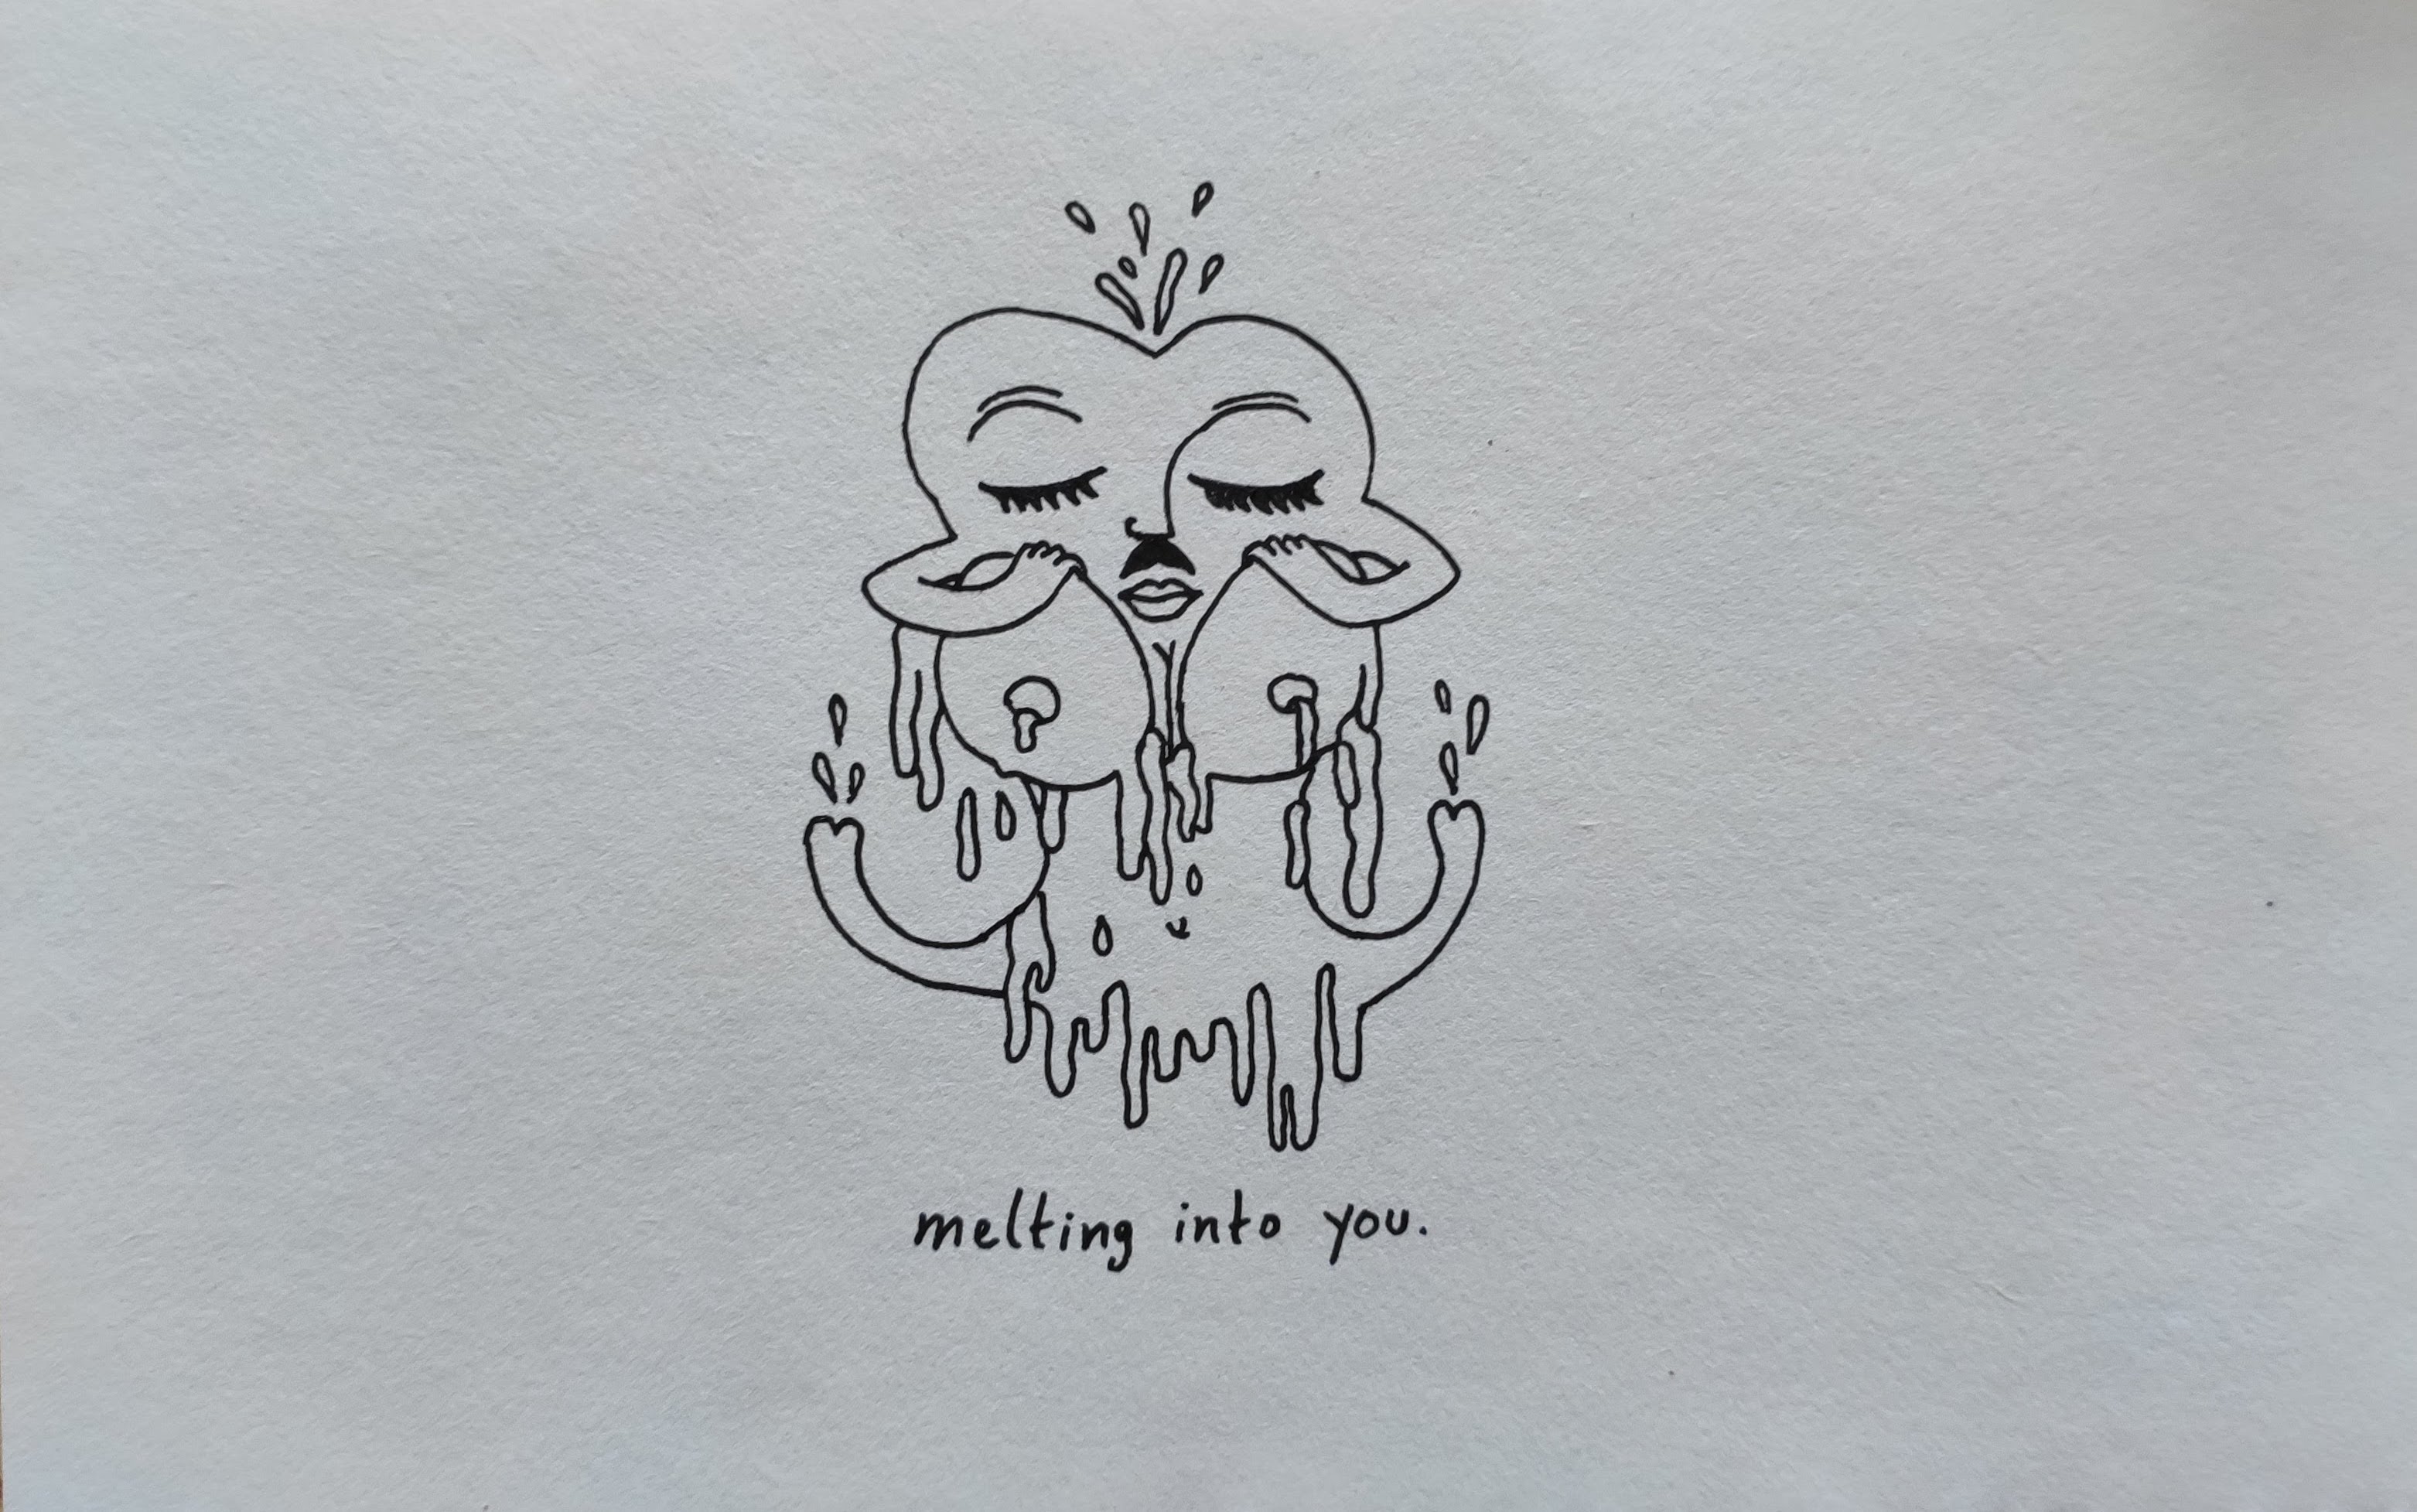 melting into you.